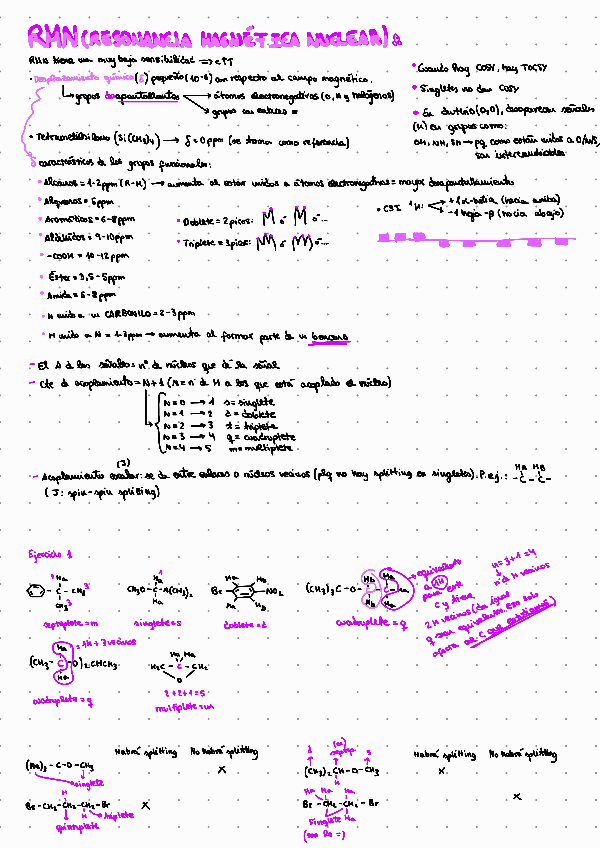 RMN (RESONANCIA MAGNÉTICA NUCLEAR)
RMN tiene un muy baja sensibilidad => CPT
· Desplazamiento químico (δ) pequeño (10⁻⁶) con respecto al campo magnético.
grupos desapantallantes → átomos electronegativos (O, N y halógenos)
grupos con enlaces =
· Tetrametilsilano (Si(CH₃)₄) → δ = 0 ppm (se toma como referencia)
δ característicos de los grupos funcionales:
· Alcanos = 1-2 ppm (R-H) → aumenta al estar unidos a átomos electronegativos = mayor desapantallamiento
· Alquenos = 5 ppm
· Aromáticos = 6-8 ppm
· Aldehídos = 9-10 ppm
· -COOH = 10-12 ppm
· Éster = 3,5-5 ppm
· Amida = 5-8 ppm
· H unido a un CARBONILO = 2-3 ppm
· H unido a N = 1-3 ppm → aumenta al formar parte de un benceno
· Doblete = 2 picos: ó ó...
· Triplete = 3 picos: ó ó...
· Cuando hay COSY, hay TOCSY
· Singletes no dan COSY
· En deuterio (D₂O), desaparecen señales
(H) en grupos como:
OH, NH, SH → pq como están unidos a O/N/S,
son intercambiables
· CSI ¹H: +1 α-hélix (hacia arriba)
-1 hoja-β (hacia abajo)
- El A de las señales = nº de núcleos que da la señal
- Cte de acoplamiento = N+1 (N = nº de H a los que está acoplado el núcleo)
N=0 → 1 s = singlete
N=1 → 2 d = doblete
N=2 → 3 t = triplete
N=3 → 4 q = cuadruplete
N=4 → 5 m = multiplete
(J)
- Acoplamiento escalar: se da entre enlaces o núcleos vecinos (pq no hay splitting en singletes). P.ej.:
Ha Hb
-C-C-
(J: spin-spin splitting)
Ejercicio 1
septuplete = m
CH₃O-C-N(CH₃)₂
singlete = s
Br NO₂
doblete = d
(CH₃)₃C-O-
cuadruplete = q
equivalente
n = 3+1 = 4
nº de H vecinos
(CH₃-C-O)₂CHCH₃
= 1H + 3 vecinos
cuadruplete = q
H₂C-C-CH₂
O
2+2+1=5
multiplete = m
Habrá splitting No habrá splitting
(Me)₃-C-O-CH₃ X
singlete
Br-CH₂-CH₂-CH₂-Br X
quintuplete
triplete
Habrá splitting No habrá splitting
d (m) septup. s
(CH₃)₂CH-O-CH₃ X
Br-CH₂-CH₂-Br X
Singlete